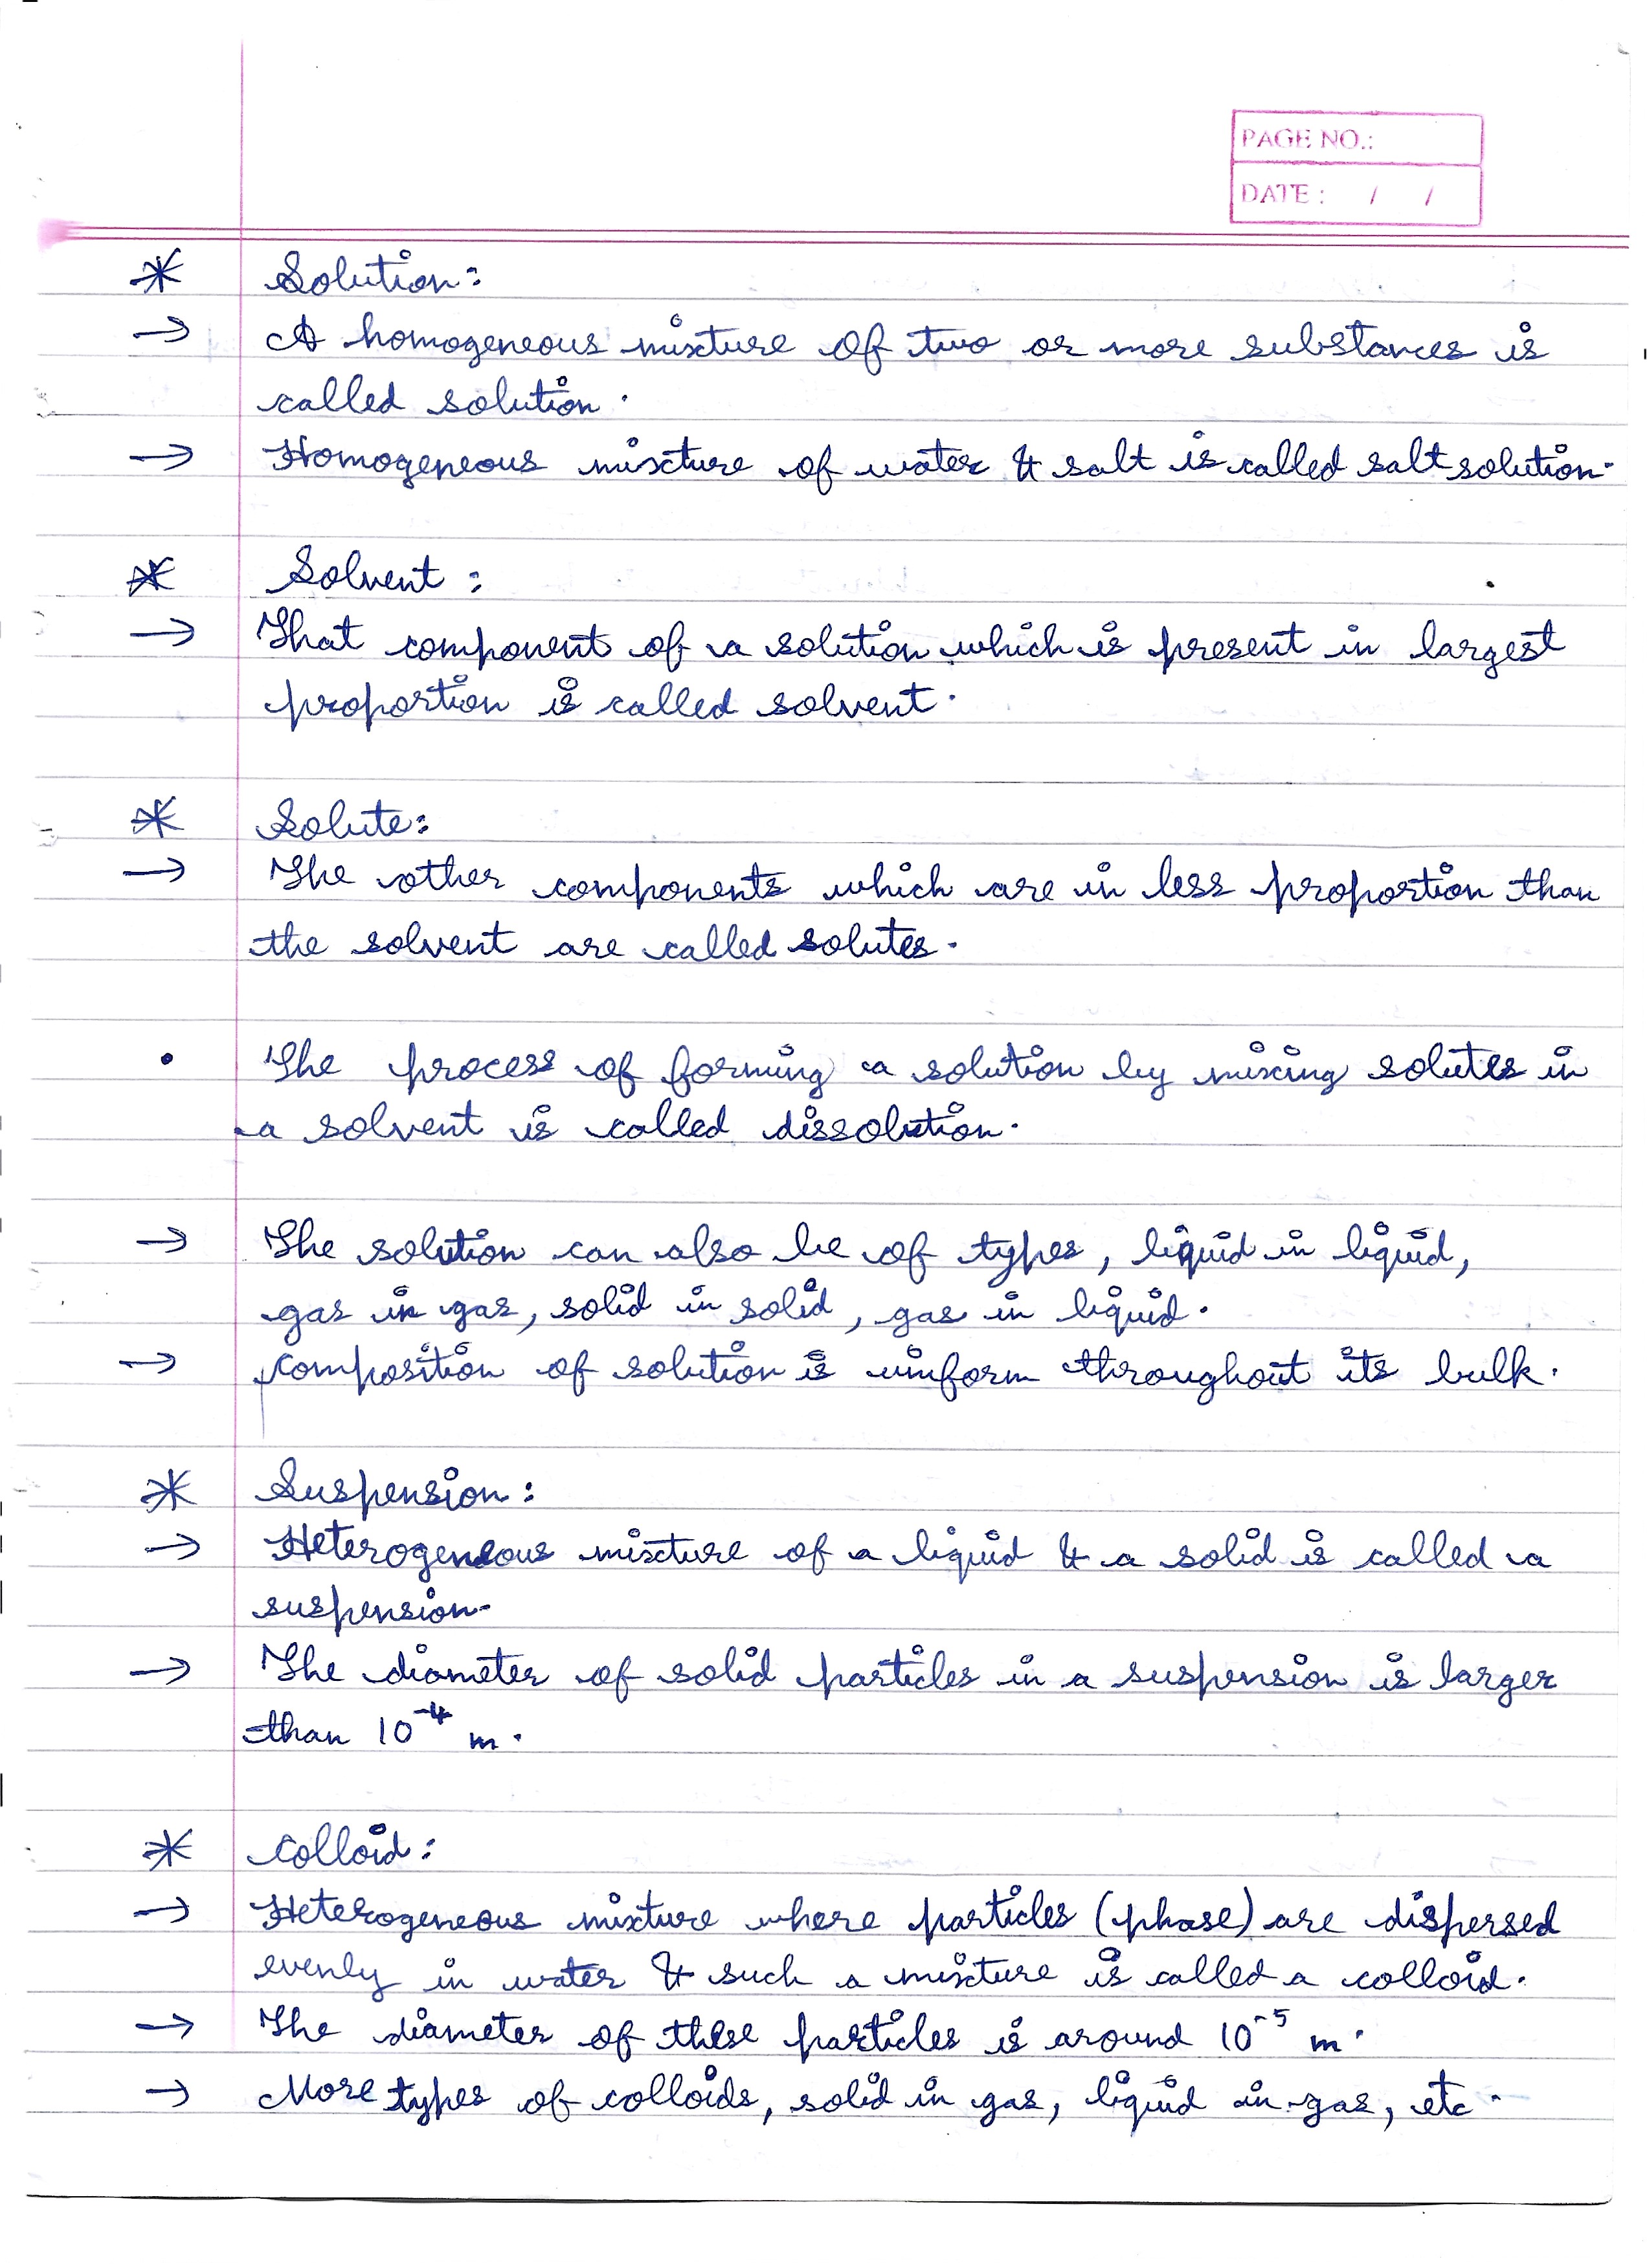 PAGE NO.:
DATE : / /
* Solution:
→ A homogeneous mixture of two or more substances is
called solution.
→ Homogeneous mixture of water & salt is called salt solution.
* Solvent :
→ That component of a solution which is present in largest
proportion is called solvent.
* Solute:
→ The other components which are in less proportion than
the solvent are called solutes.
• The process of forming a solution by mixing solutes in
a solvent is called dissolution.
→ The solution can also be of types, liquid in liquid,
gas in gas, solid in solid, gas in liquid.
→ composition of solution is uniform throughout its bulk.
* Suspension:
→ Heterogeneous mixture of a liquid & a solid is called a
suspension.
→ The diameter of solid particles in a suspension is larger
than 10⁻⁴ m.
* Colloid:
→ Heterogeneous mixture where particles (phase) are dispersed
evenly in water & such a mixture is called a colloid.
→ The diameter of these particles is around 10⁻⁵ m.
→ More types of colloids, solid in gas, liquid in gas, etc.